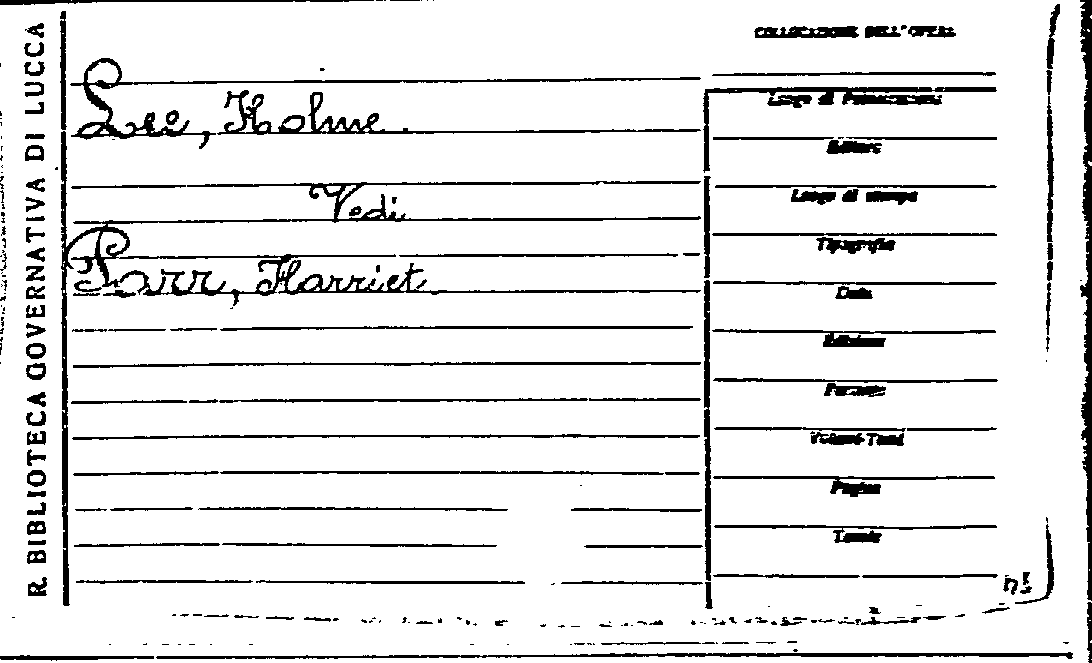 R. BIBLIOTECA GOVERNATIVA DI LUCCA
COLLOCAZIONE DELL'OPERA
Lee, Holme.
Vedi
Parr, Harriet.
Luogo di Pubblicazione
Editore
Luogo di stampa
Tipografia
Data
Edizione
Formato
Volumi-Tomi
Pagine
Tavole